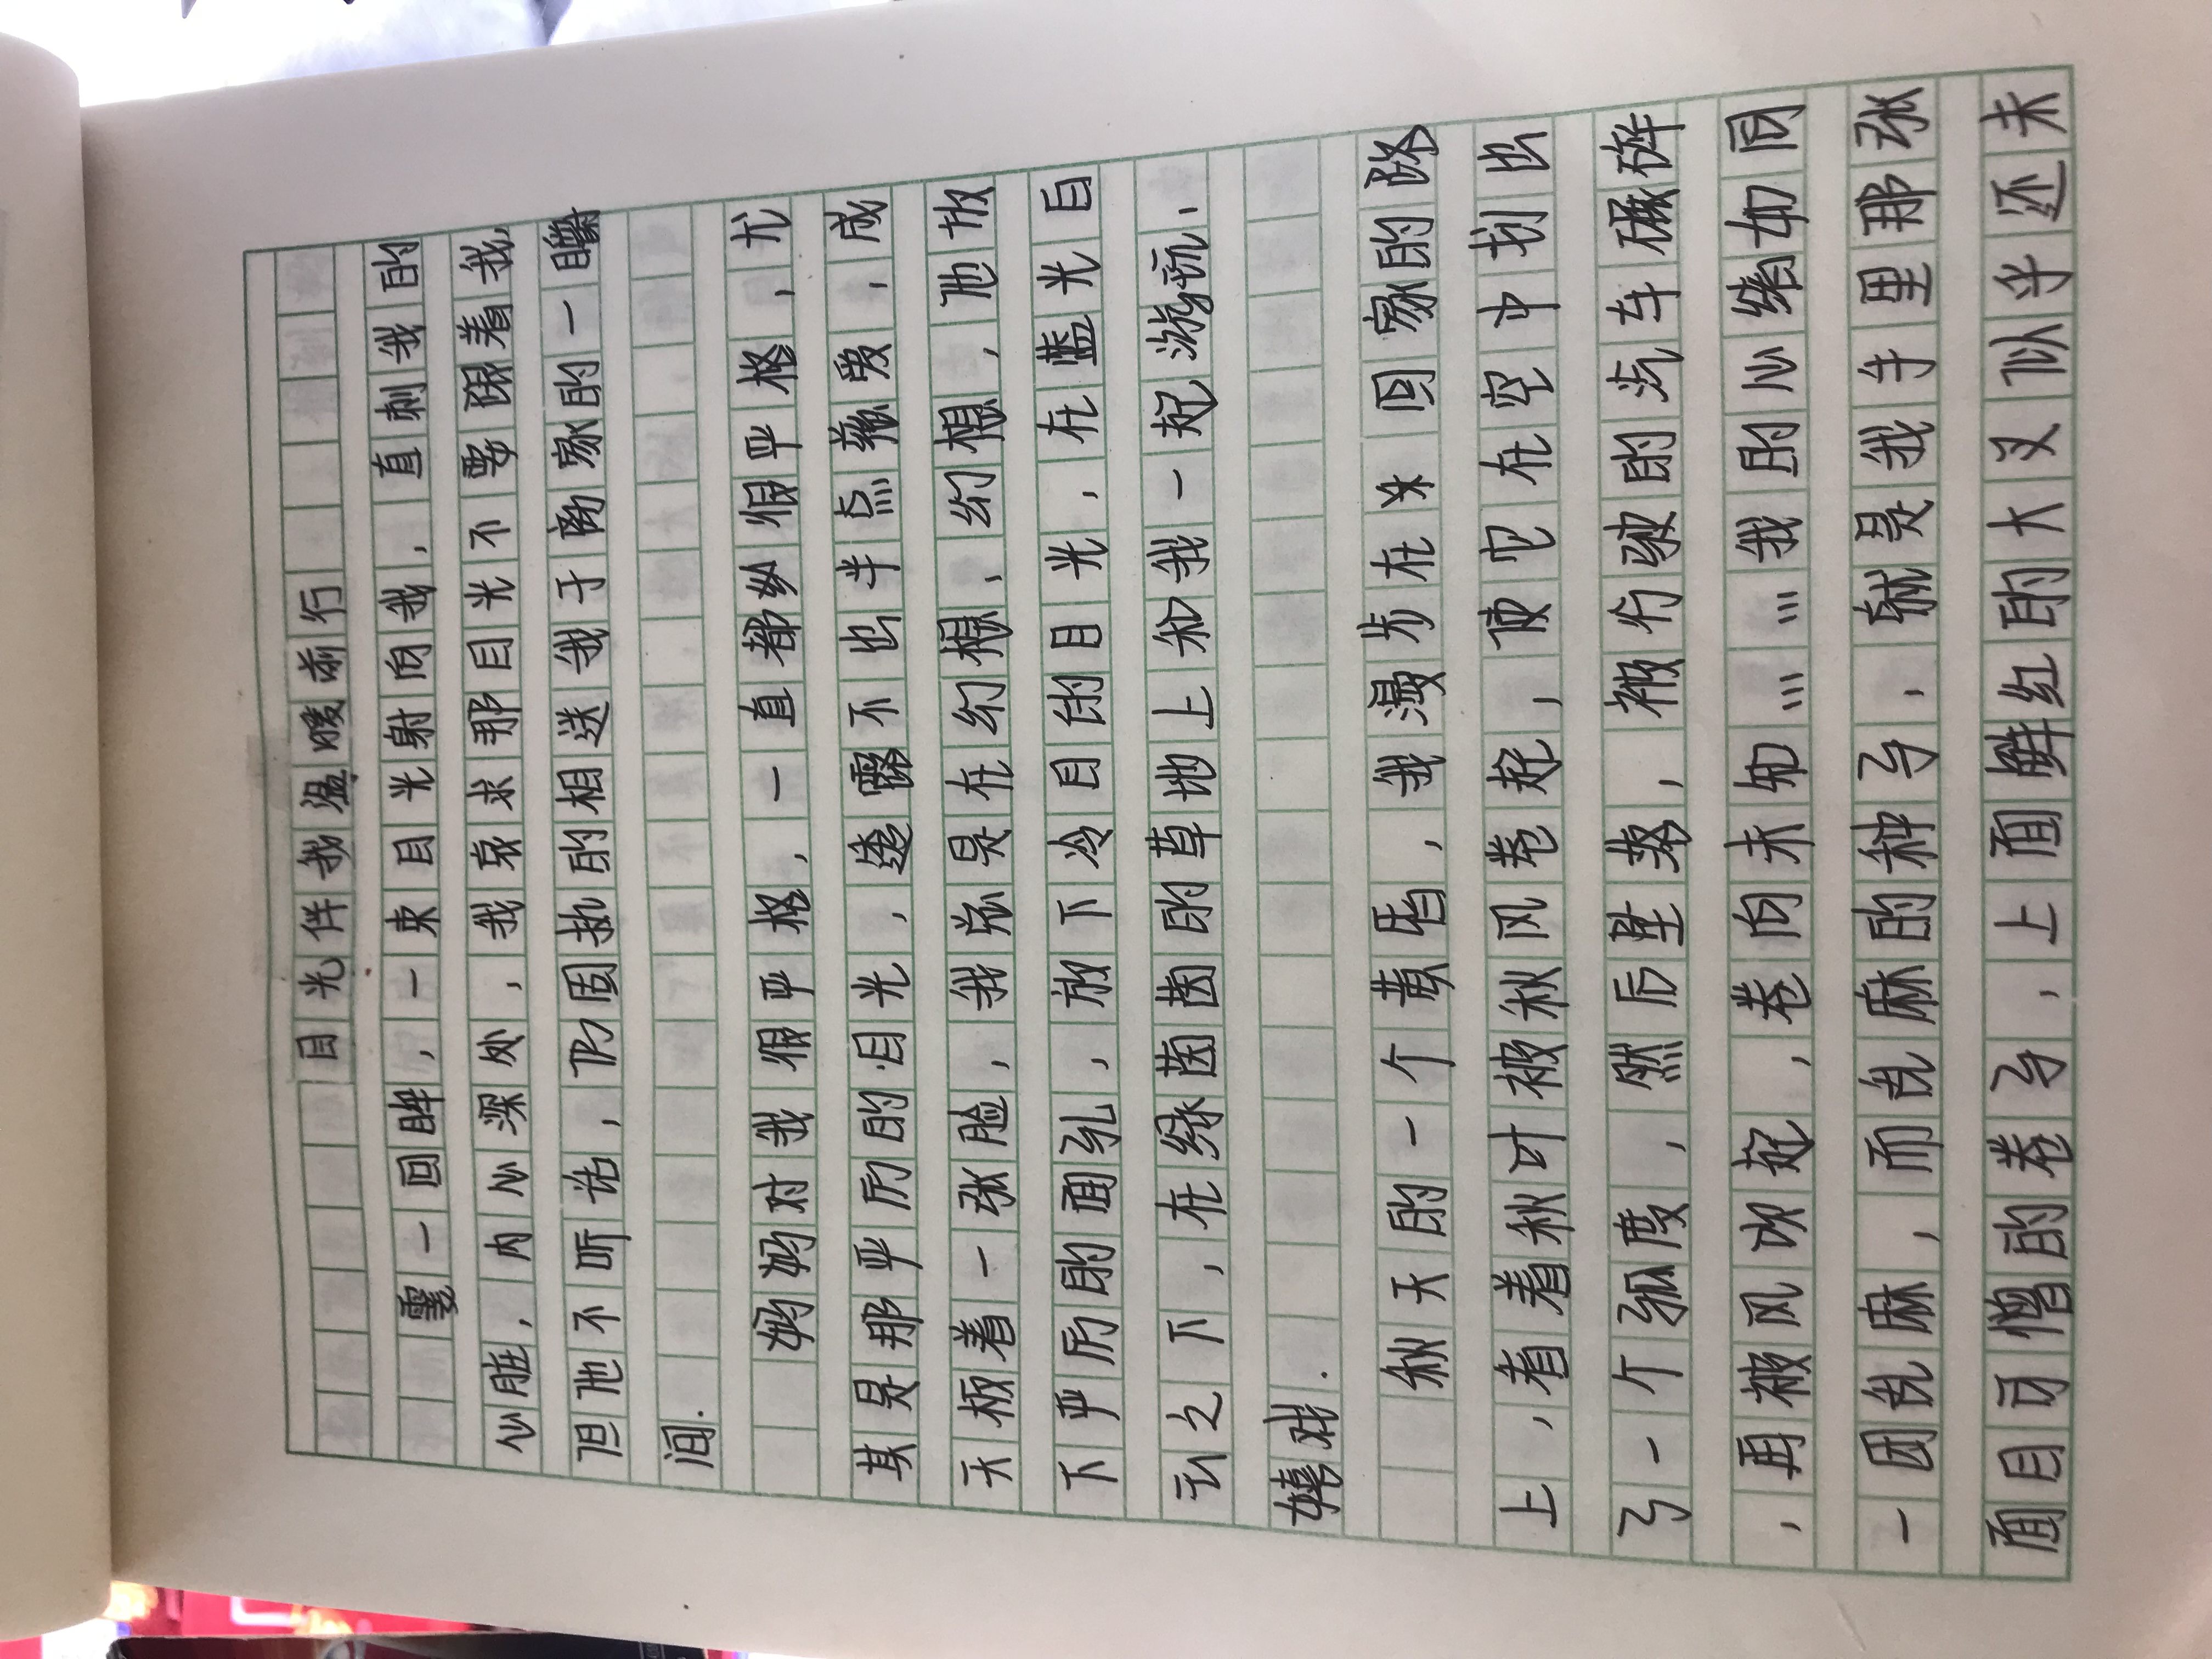 目光伴我温暖前行
蓦一回眸,一束目光射向我,直刺我的
心脏,内心深处,我哀求那目光不要跟着我,
但他不听话,仍固执的相送我于商家的一
间.
妈妈对我很严格,一直都纷很严格,尤
其是那严厉的目光,透露不也半点慈爱,成
天板着一张脸,我总是在幻想,幻想,他放
下严厉的面孔,放下冷目的目光,在蓝光白
云之下,在绿茵茵的草地上和我一起游玩,
嬉戏.
秋天的一个黄昏,我漫步在 回家的路
上,看着秋叶被秋风卷起,使它在空中划出
了一个弧度,然后坠落,被行驶的汽车碾碎
,再被风吹起,卷向未知……我的心绪如同
一团乱麻,而乱麻的种子,就是我手里那张
面目可憎的卷子,上面鲜红的大叉似乎还未